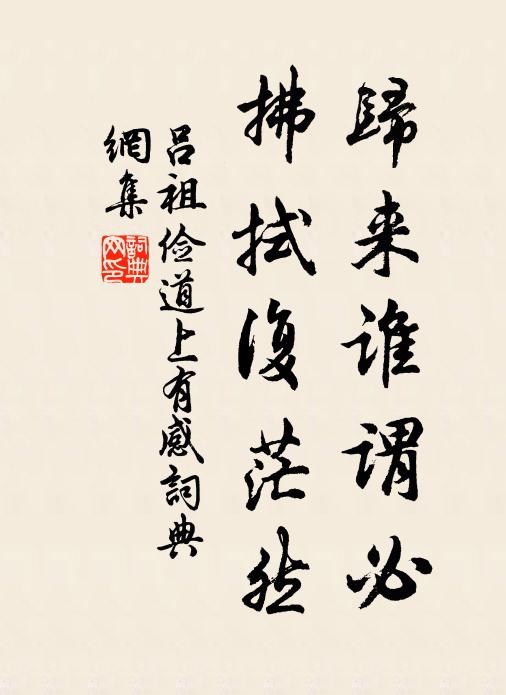 歸来谁謂必
拂拭復茫然
呂祖俭道上有感詞典
網集
詞典
网印